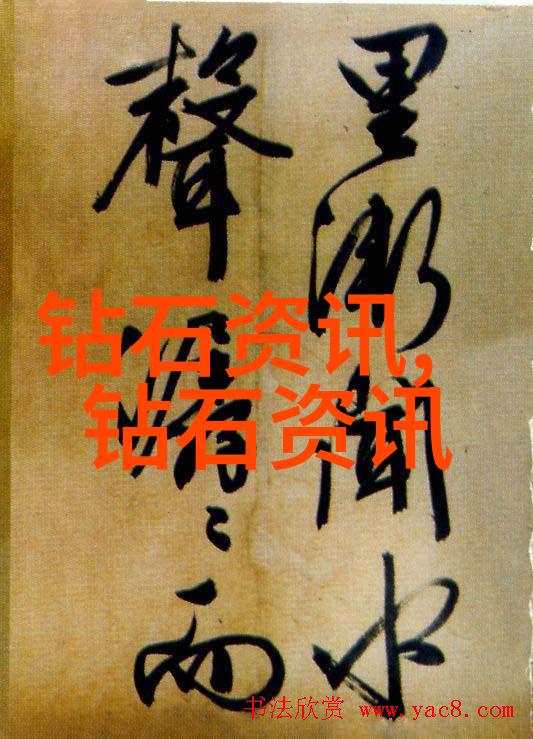 里漸聞水
聲潺々而
钻石资讯,
钻石资讯
书法欣赏 www.yac8.com